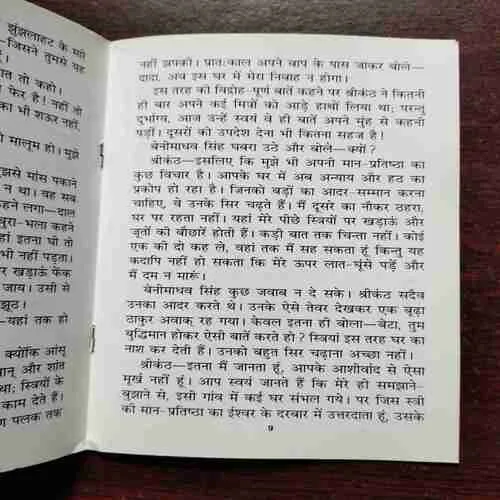 झुंझलाहट के मारे
—जिसने तुमसे यह
ात तो कहो।
फेर है! नहीं तो
का भी शऊर नहीं।
ही मालूम हो। मुझे
मुझसे मांस पकाने
न था। वह सब
कहने लगा—दाल
बुरा-भला कहने
हां इतना घी तो
भी नहीं पड़ता।
पर खड़ाऊं फेंक
जाय। उसी से
झूठ।
—यहां तक हो
क्योंकि आंसू
ान् और शांत
था; स्त्रियों के
काम देते हैं।
ण पलक तक
नहीं झपकी। प्रात:काल अपने बाप के पास जाकर बोले—
दादा, अब इस घर में मेरा निबाह न होगा।
इस तरह की विद्रोह-पूर्ण बातें कहने पर श्रीकंठ ने कितनी
ही बार अपने कई मित्रों को आड़े हाथों लिया था; परन्तु
दुर्भाग्य, आज उन्हें स्वयं वे ही बातें अपने मुंह से कहनी
पड़ीं। दूसरों को उपदेश देना भी कितना सहज है!
बेनीमाधव सिंह घबरा उठे और बोले—क्यों?
श्रीकंठ—इसलिए कि मुझे भी अपनी मान-प्रतिष्ठा का
कुछ विचार है। आपके घर में अब अन्याय और हठ का
प्रकोप हो रहा है। जिनको बड़ों का आदर-सम्मान करना
चाहिए, वे उनके सिर चढ़ते हैं। मैं दूसरे का नौकर ठहरा,
घर पर रहता नहीं। यहां मेरे पीछे स्त्रियों पर खड़ाऊं और
जूतों की बौछारें होती हैं। कड़ी बात तक चिन्ता नहीं। कोई
एक की दो कह ले, वहां तक मैं सह सकता हूं किन्तु यह
कदापि नहीं हो सकता कि मेरे ऊपर लात-घूंसे पड़ें और
मैं दम न मारूं।
बेनीमाधव सिंह कुछ जवाब न दे सके। श्रीकंठ सदैव
उनका आदर करते थे। उनके ऐसे तेवर देखकर एक बूढ़ा
ठाकुर अवाक् रह गया। केवल इतना ही बोला—बेटा, तुम
बुद्धिमान होकर ऐसी बातें करते हो? स्त्रियां इस तरह घर का
नाश कर देती हैं। उनको बहुत सिर चढ़ाना अच्छा नहीं।
श्रीकंठ—इतना मैं जानता हूं, आपके आशीर्वाद से ऐसा
मूर्ख नहीं हूं। आप स्वयं जानते हैं कि मेरे ही समझाने-
बुझाने से, इसी गांव में कई घर संभल गये। पर जिस स्त्री
की मान-प्रतिष्ठा का ईश्वर के दरबार में उत्तरदाता हूं, उसके
9